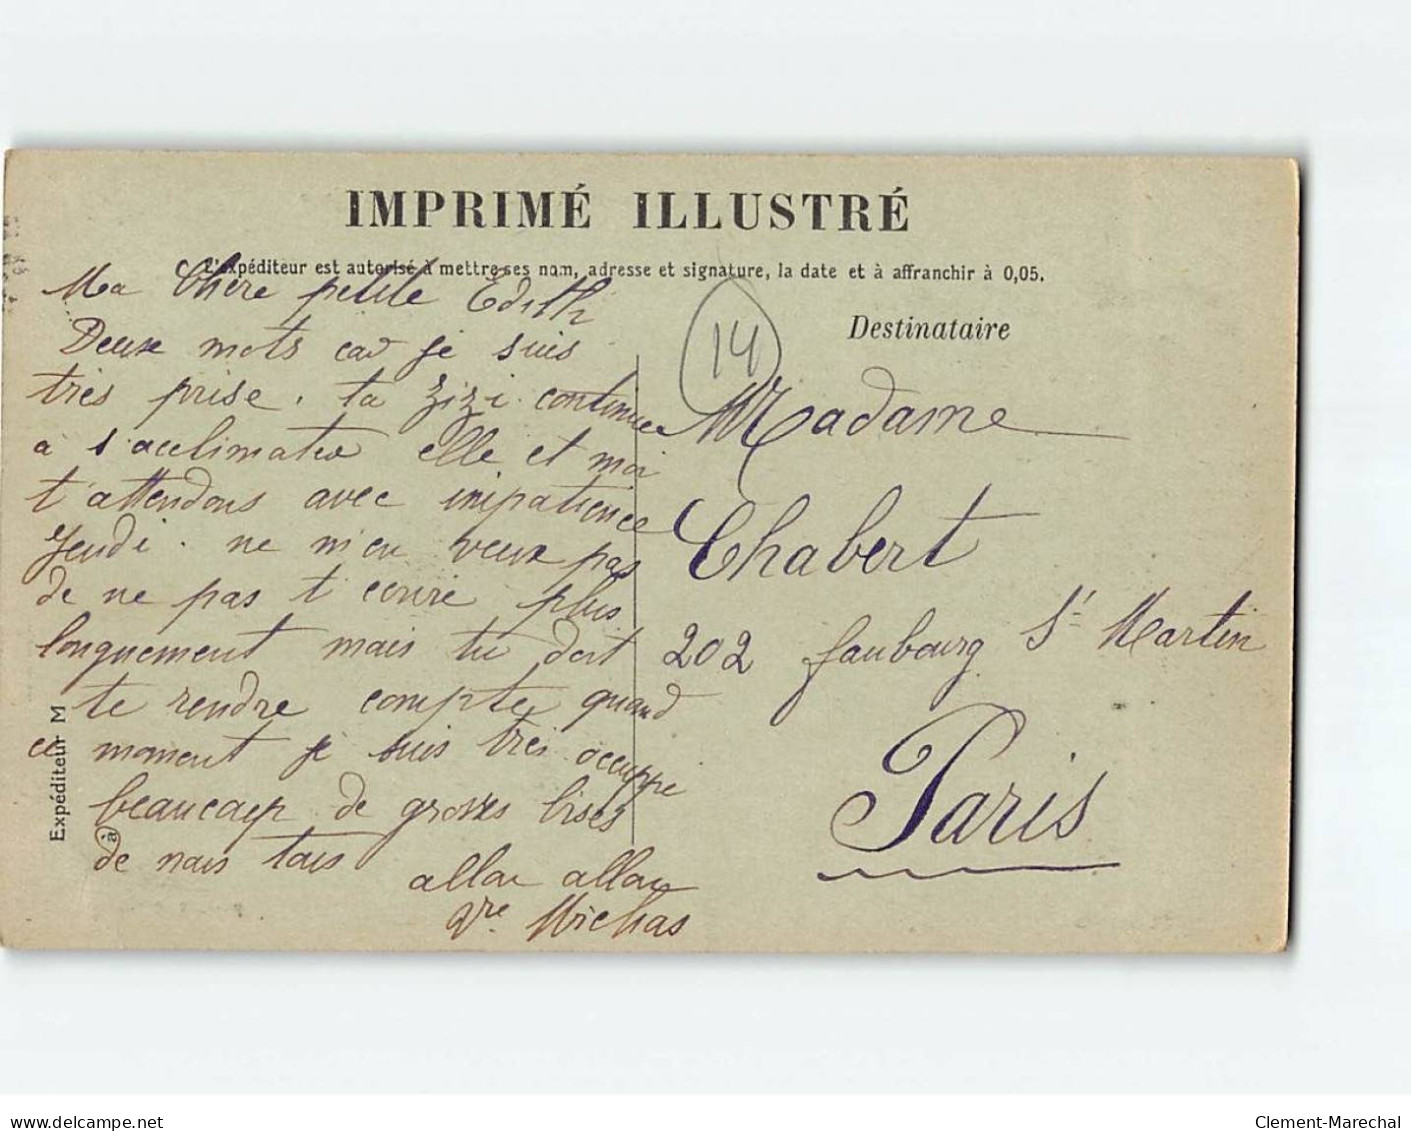 IMPRIMÉ ILLUSTRÉ
L'expéditeur est autorisé à mettre ses nom, adresse et signature, la date et à affranchir à 0,05.
Ma Chère petite Edith
Deux mots car je suis
très prise. ta zizi continue
a s'acclimater elle et moi
t'attendons avec impatience
Jeudi. ne m'en veux pas
de ne pas t'ecrire plus
longuement mais tu doit
te rendre compte quand
ce moment je suis très occuppé
beaucoup de grosses bises
de nous tous
allou allou
Vre Michas
Expéditeur M
à
14
Destinataire
Madame
Chabert
202 faubourg St Martin
Paris
www.delcampe.net
Clement-Marechal